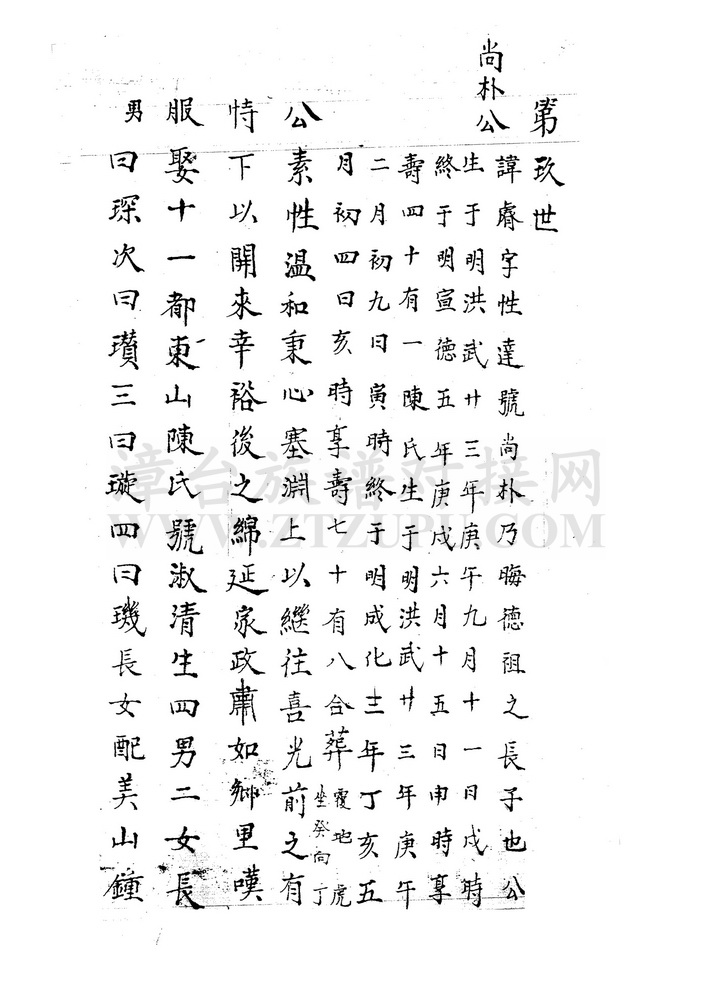 第玖世
尚朴公
諱睿字性達號尚朴乃晦德祖之長子也公
生于明洪武廿三年庚午九月十一日戌時
終于明宣德五年庚戌六月十五日申時享
壽四十有一陳氏生于明洪武廿三年庚午
二月初九日寅時終于明成化三年丁亥五
月初四日亥時享壽七十有八合葬覆地虎
坐癸向丁
公素性溫和秉心塞淵上以繼往喜光前之有
恃下以開來幸裕後之綿延家政肅如鄉里嘆
服娶十一都東山陳氏號淑清生四男二女長
男曰琛次曰瓚三曰璇四曰璣長女配美山鍾
漳台族谱对接网
WWW.ZTZUPU.COM